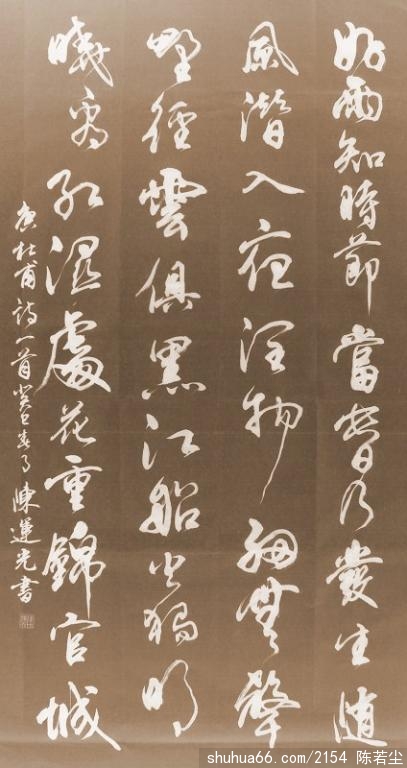 好雨知時節當春乃發生随
風潛入夜潤物細無聲
野徑雲俱黑江船火獨明
曉看紅濕處花重錦官城
唐杜甫詩一首癸巳春月陳光書
shuhua66.com/2154 陈若尘